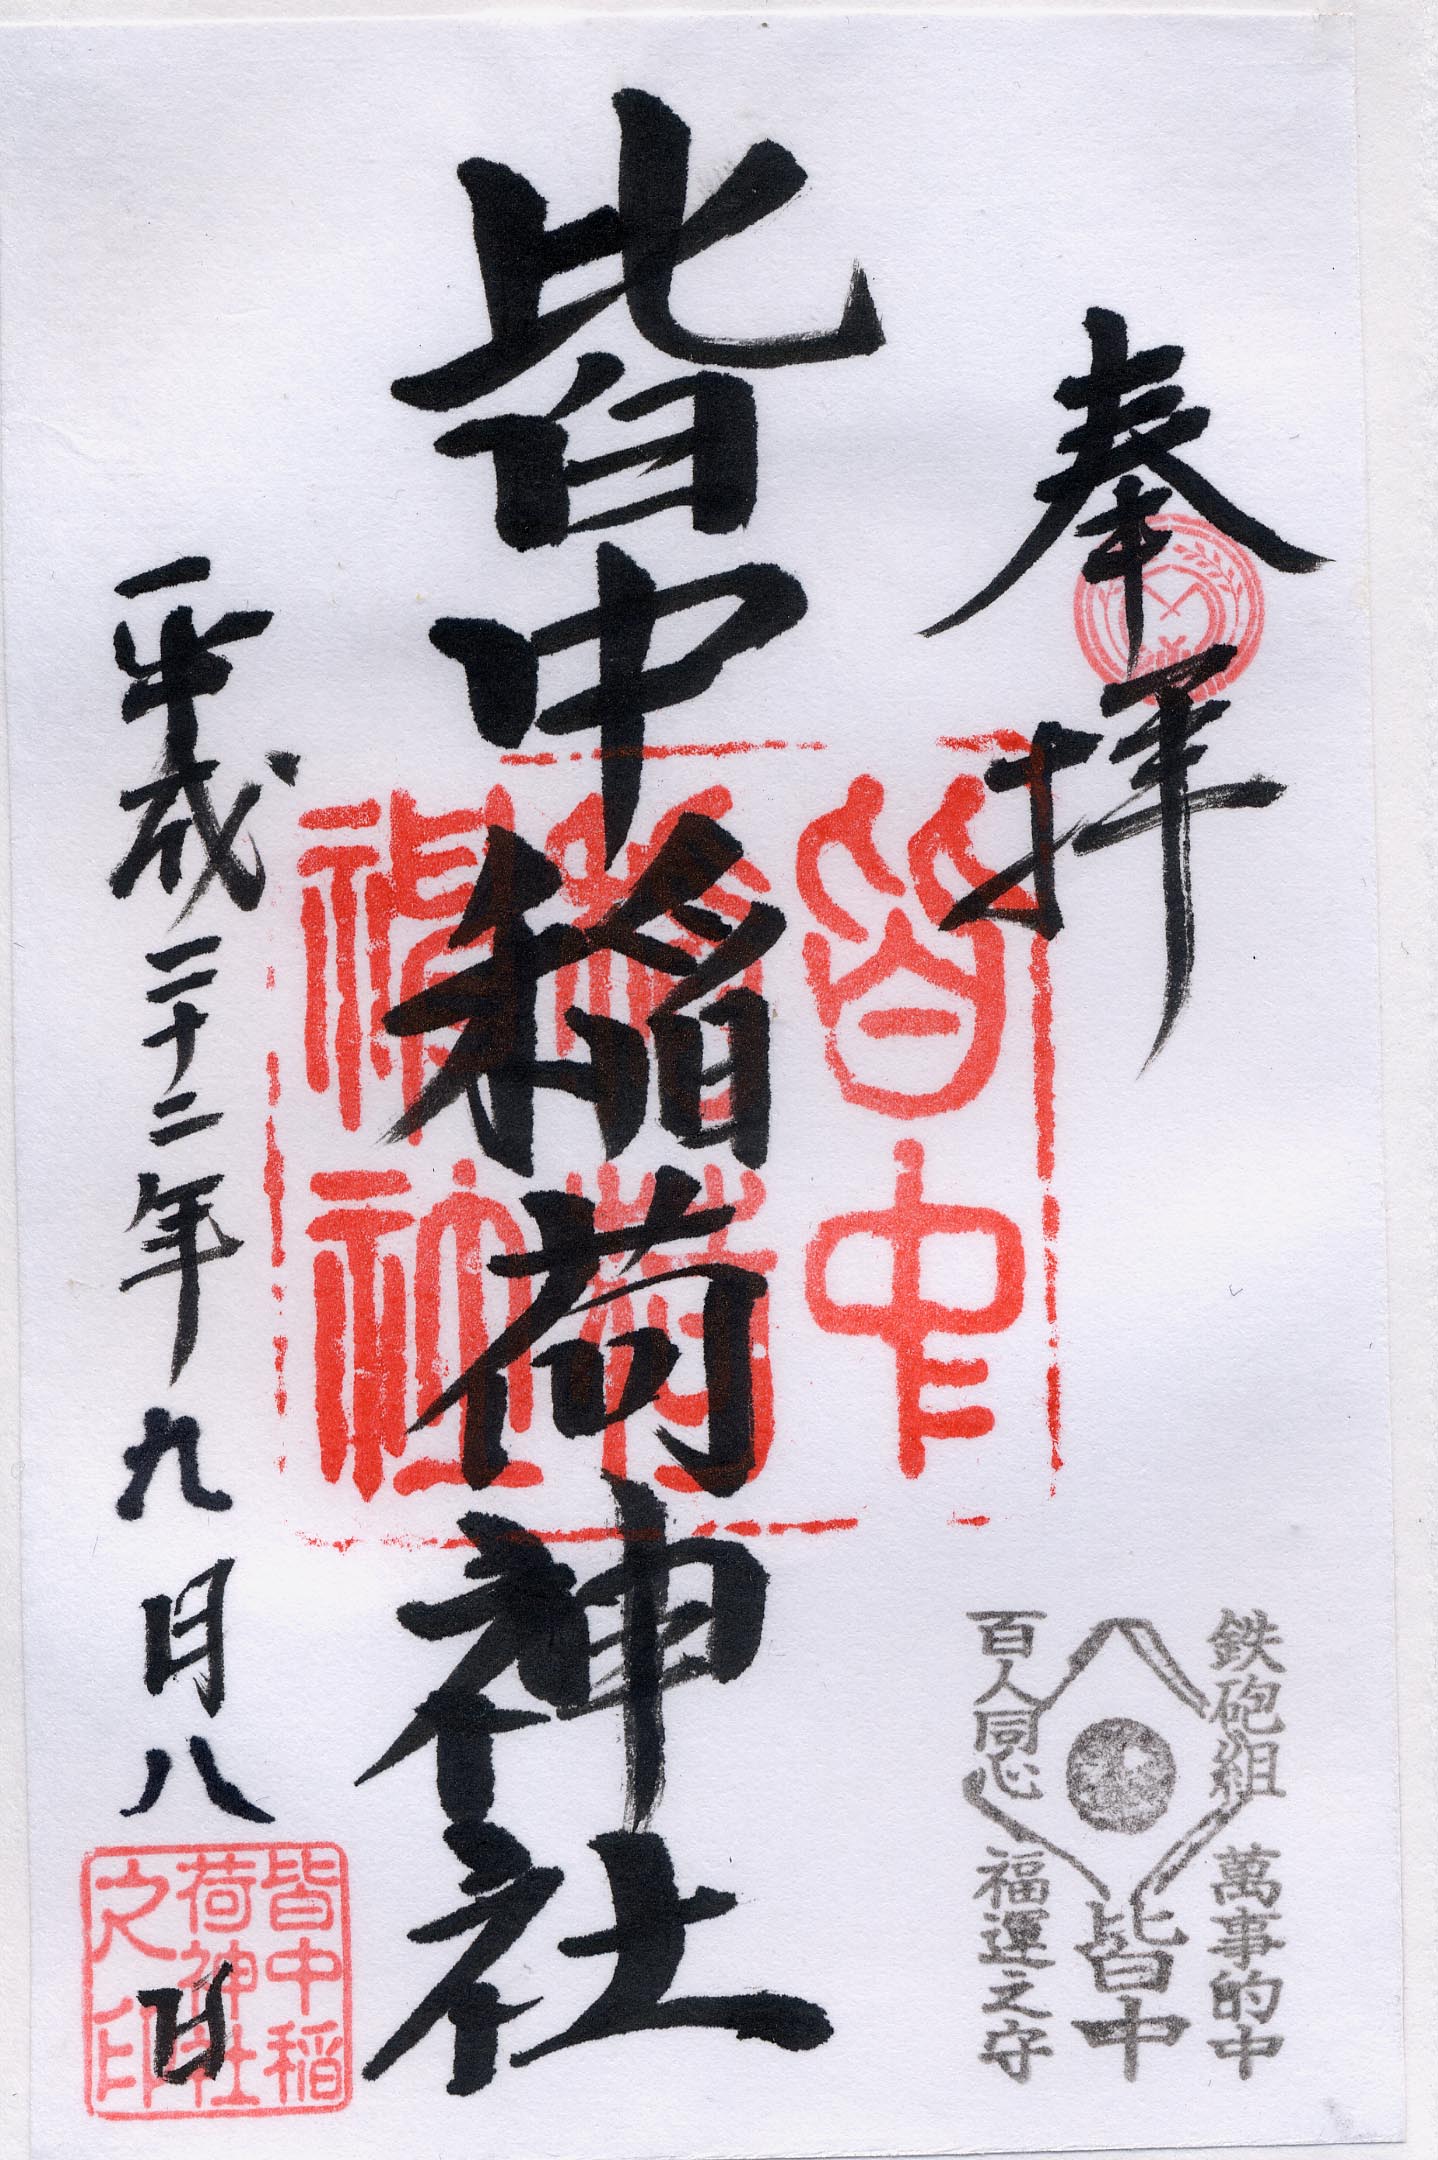 奉拝
皆中稲荷神社
平成二十二年九月八日
皆中
稲荷
神社
鉄砲組
百人同心
萬事的中
皆中
福運之守
皆中稲
荷神社
之印